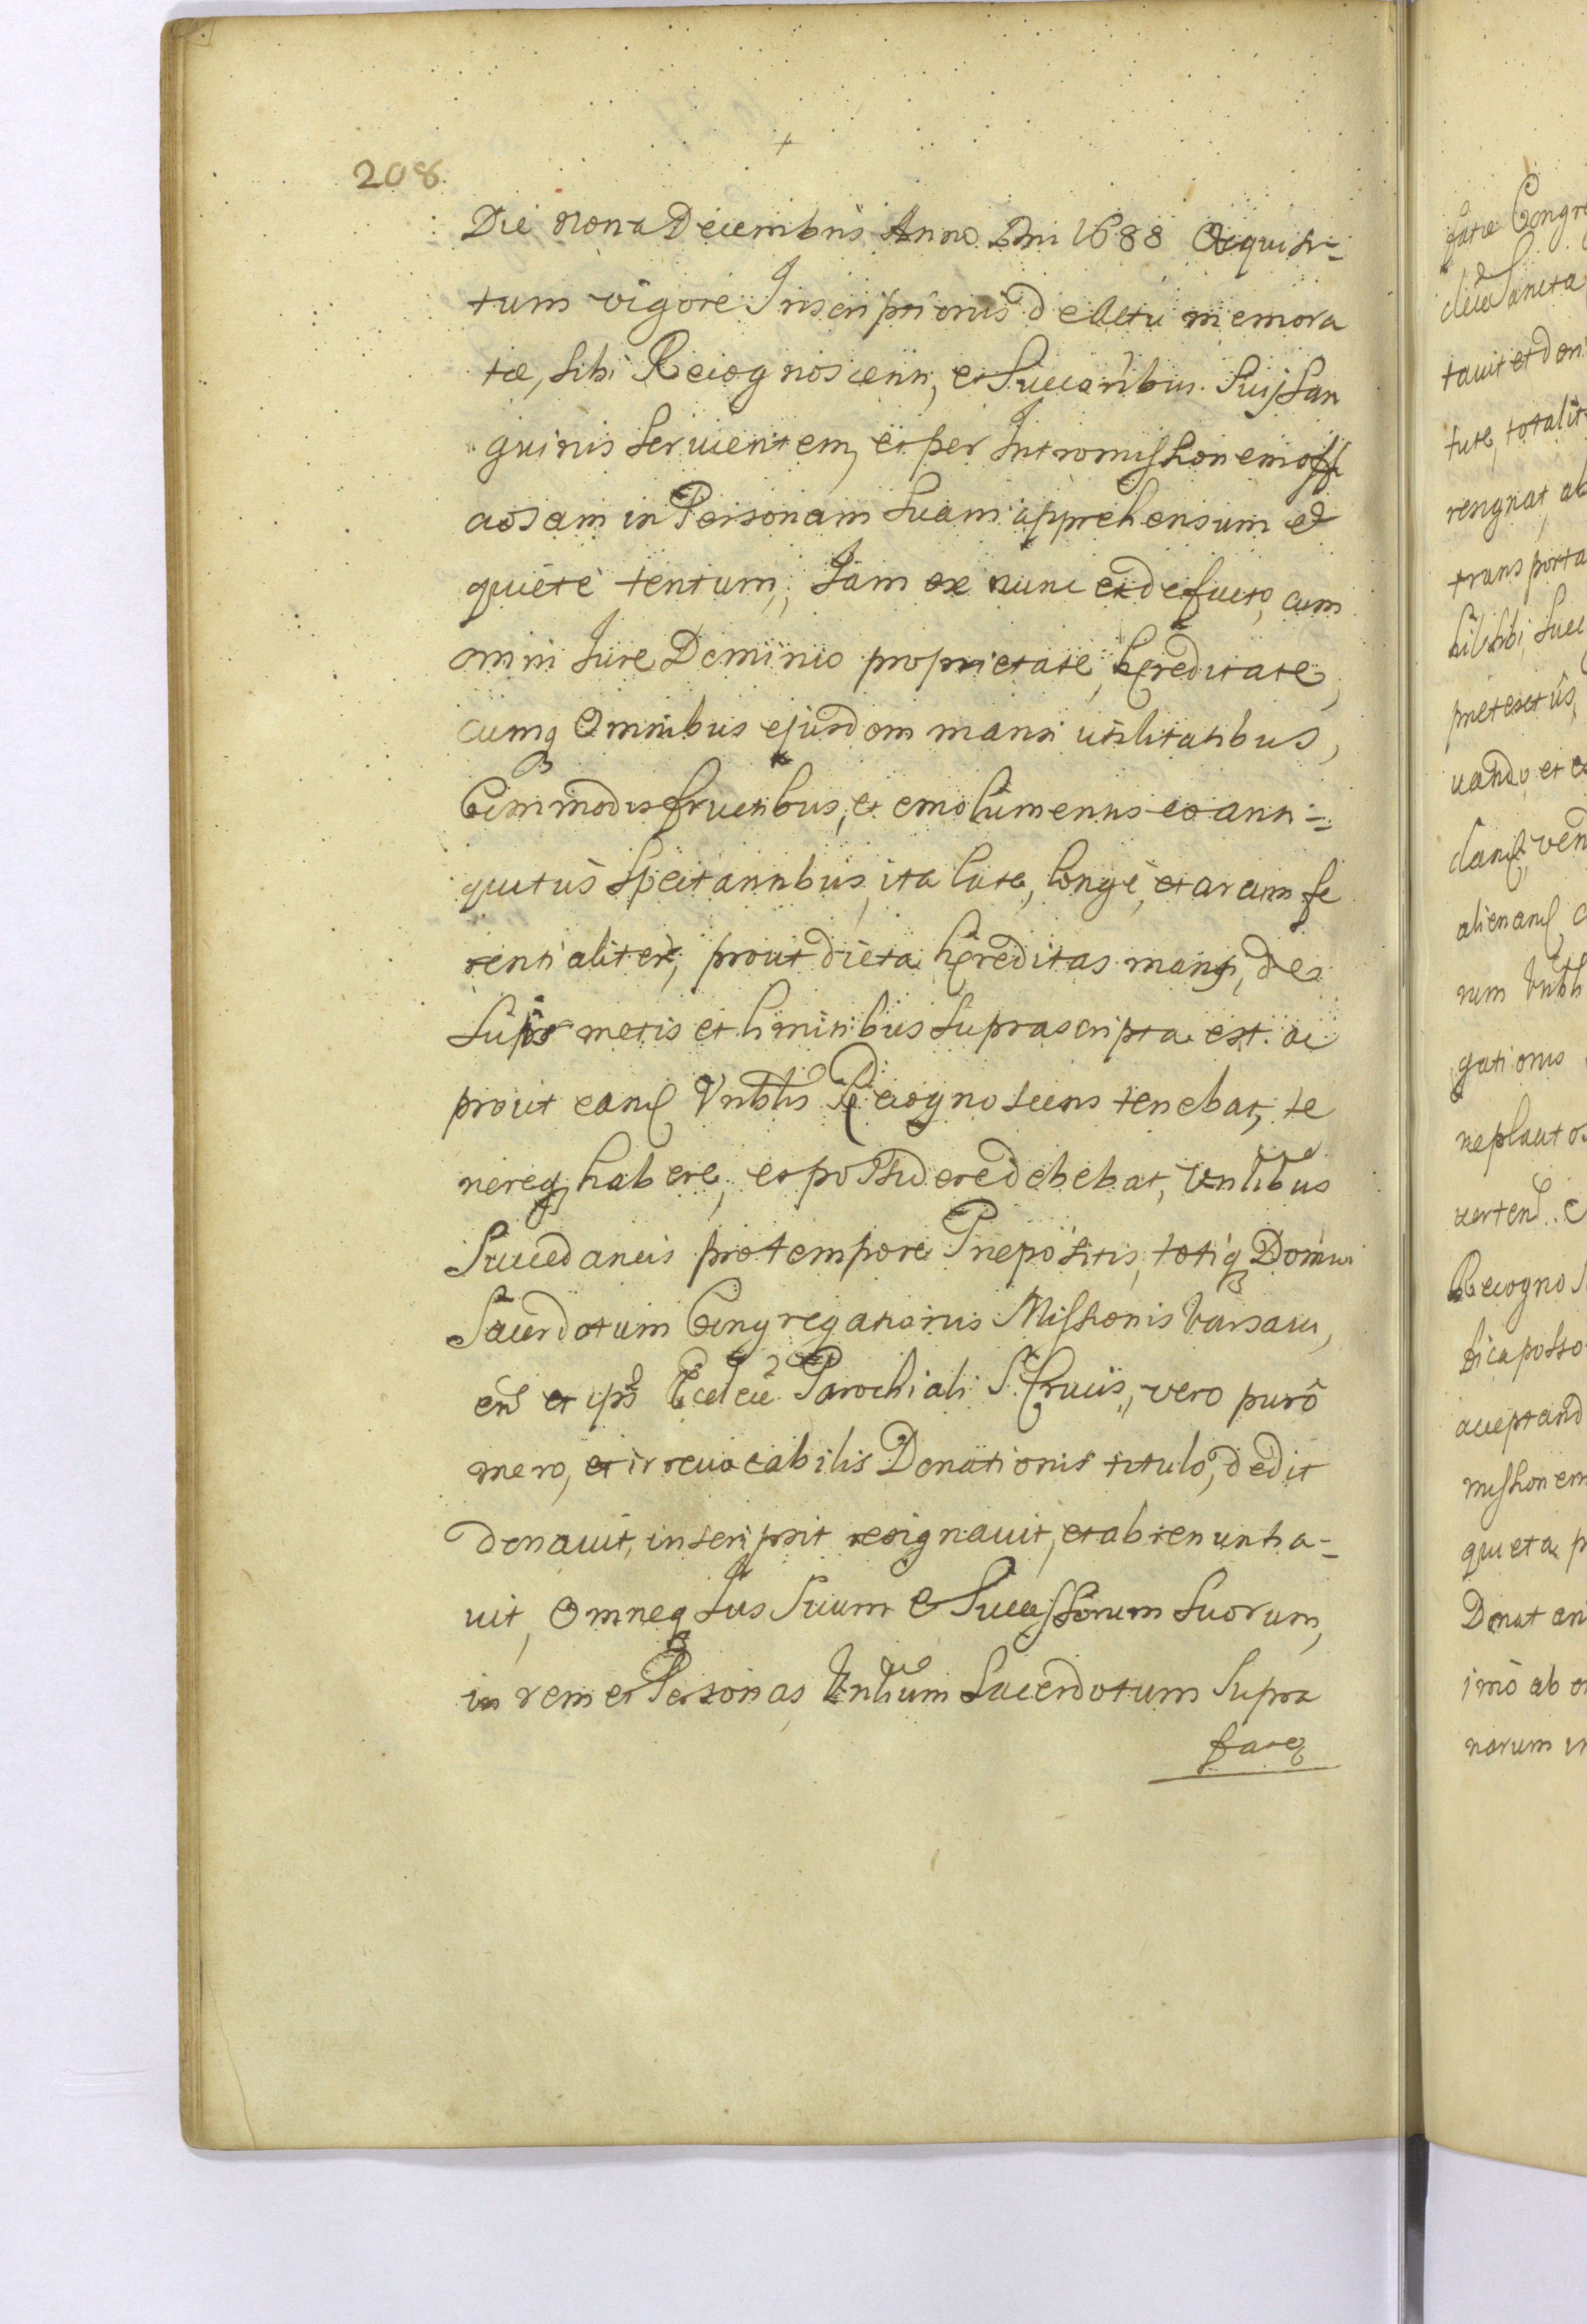 208
Die nona Decembris Anno Dni 1688 Acquisi-
tum vigore Inscriptionis de Actu memora
tæ, sibi Recognoscenti, et Succoribus Suis San
guinis servientem, et per Intromissionem off
aosam in Personam suam apprehensum et
quiete tentum, Jam ex nunc et de facto, cum
omni Jure Dominio proprietate, hæreditate,
cumq Omnibus ejusdem mansi utilitatibus,
Commodis fructibus, et emolumentis ex anti-
quitus spectantibus, ita late, longe, et circumfe
rentialiter, prout dicta hæreditas mansi, de
super metis et limitibus suprascripta est. ac
prout eam Vnblis Recognoscens tenebat, te
nereq habere, et possidere debebat, Vnlibus
Succedaneis pro tempore Præpositis, totiq Domui
Sacerdotum Congregationis Missionis Varsavi,
en et ips Eccleæ Parochiali S. Crucis, vero puro
mero, et irrevocabilis Donationis titulo, dedit
donavit, inscripsit resignavit, et abrenuntia-
uit, Omneq Jus Suum & Successorum suorum,
in rem et Personas Vnlium Sacerdotum supra
fatæ
fatæ Congre
Sancta
tavit et don
tute, totalit
resignat ab
transporta
sibi, Succ
prætextus,
vando, et
ven
alienan
num Vnbli
gationis
Recogno
acceptand
missionem
quieta p
Donat
imo ab
narum in